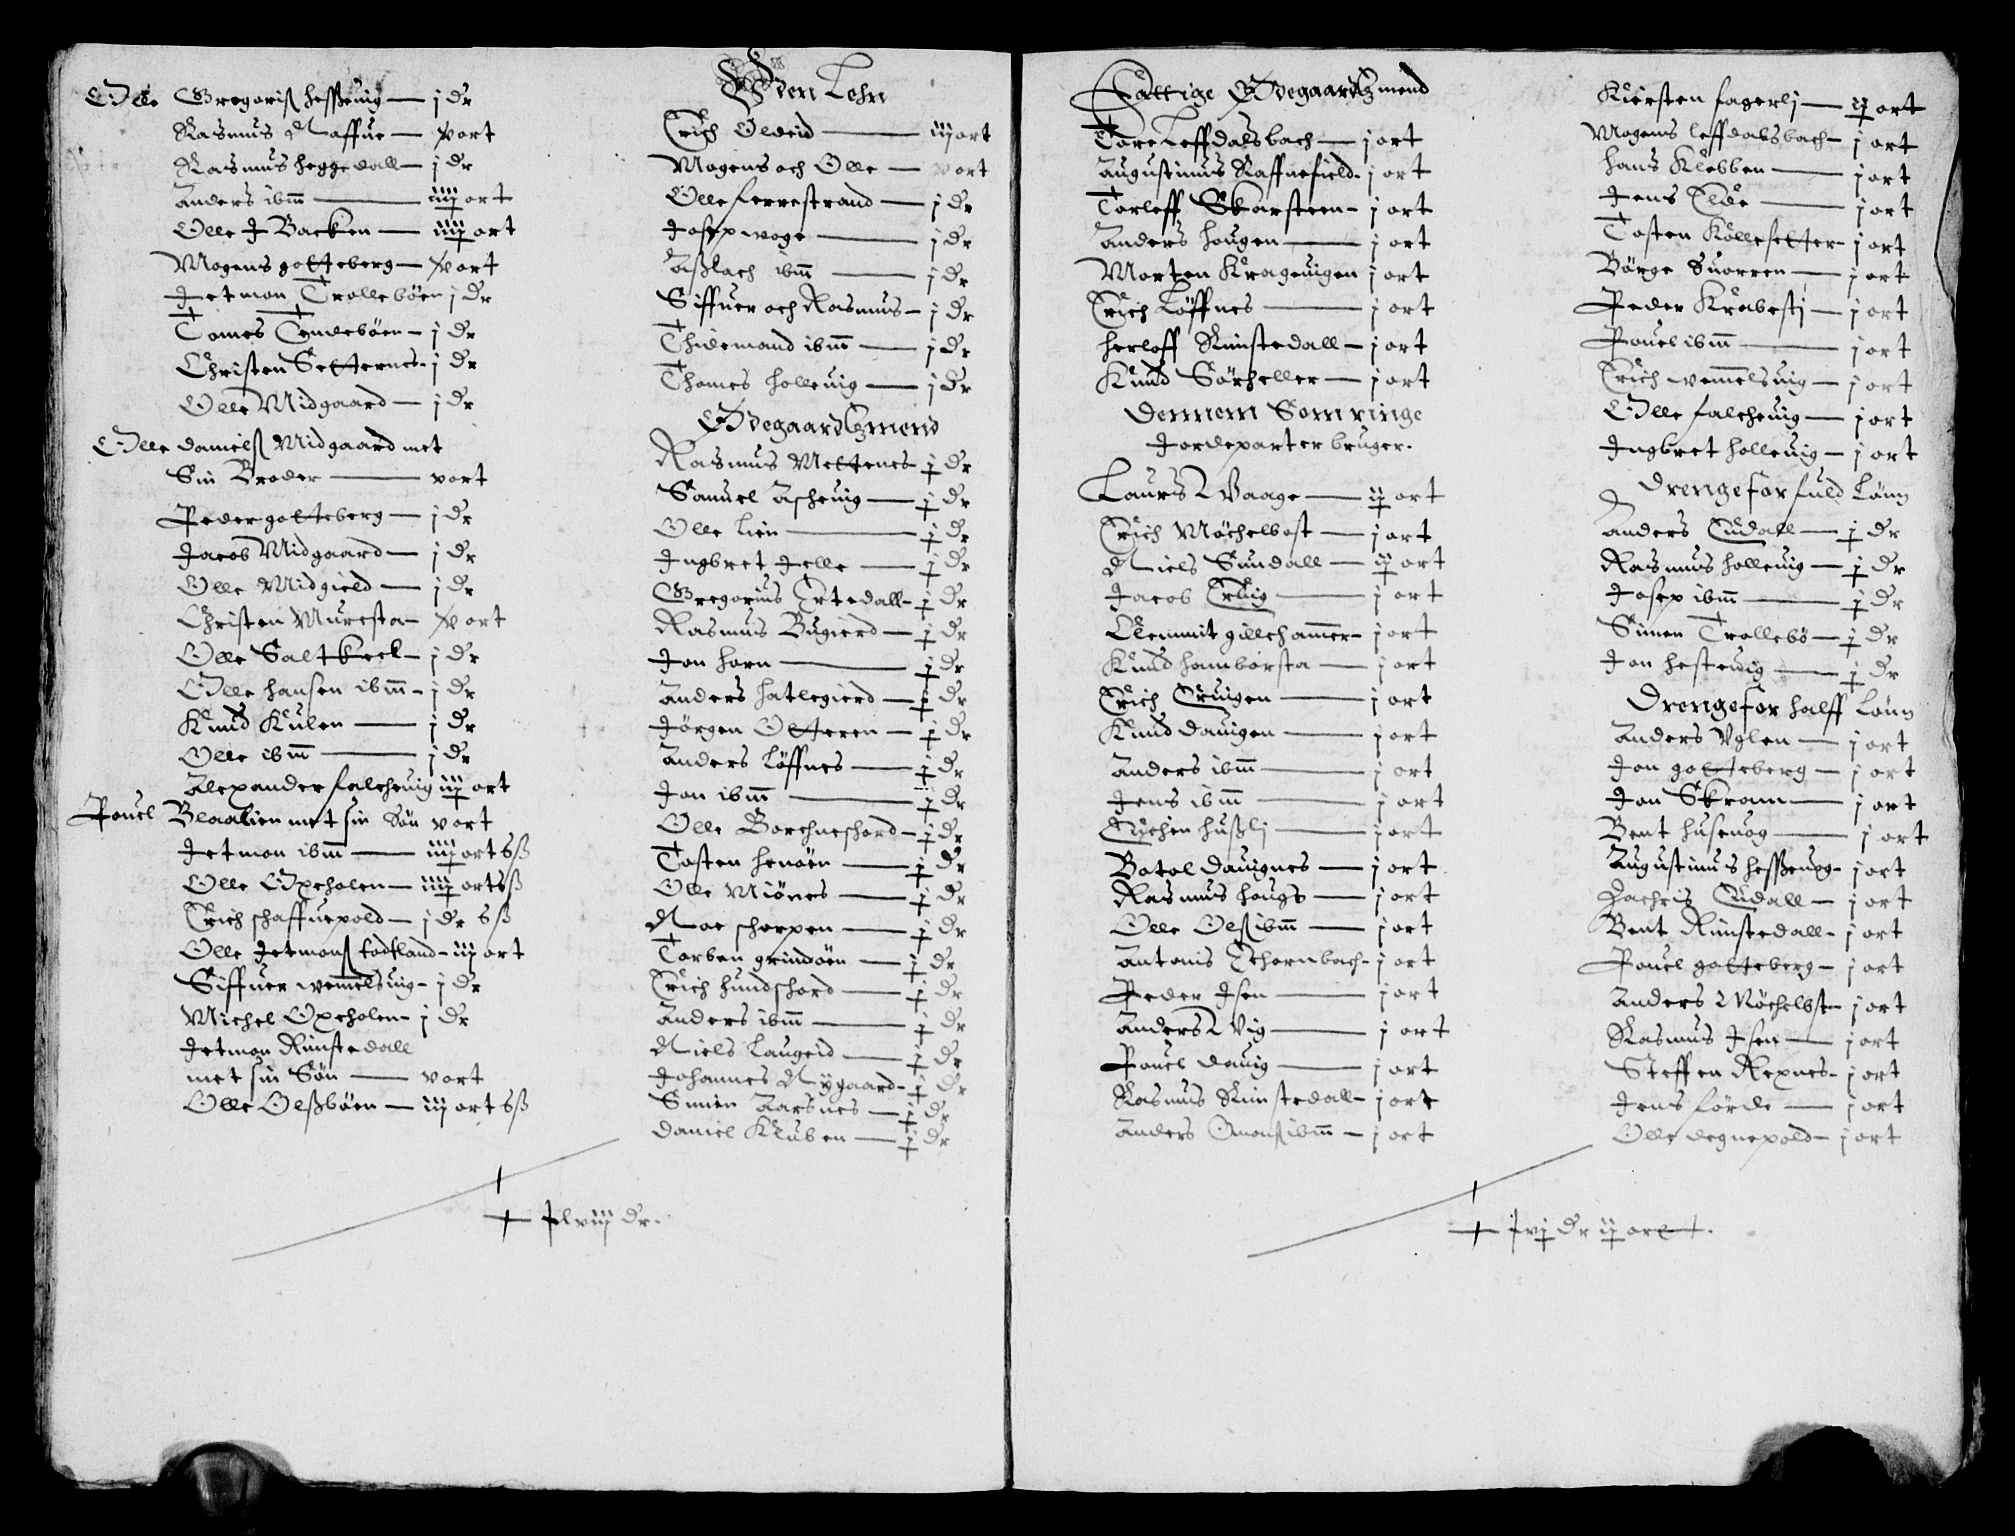 Olle Gregoriß hessßeuig — j dr
Rasmus Naffue — vort
Rasmus heggedall — j dr
Anders ibm̄ — iiij ort
Olle J Backen — iiij ort
Mogens golteberg — vort
Jetmon Trolleböen j dr
Tomes Tyndeböen — j dr
Christen Setternes — j dr
Olle Midgaard — j dr
Olle danielß Midgaard met
Sin Broder — vort
Peder golteberg — j dr
Jacob Midgaard — j dr
Olle Midgield — j dr
Christen Muresta — vort
Olle Saltkeel — j dr
Olle hansen ibm̄ — j dr
Knud Kulen — j dr
Olle ibm̄ — j dr
Alexander falcheuig iij ort
Pouel Blaalien met sin Sön vort
Jetmon ibm̄ — iiij ort 6ß
Olle Oxeholen — iiij ort 6ß
Erich schaffuepold — j dr 6ß
Olle Jetmonß todtland — iij ort
Siffuer wemmelsuig — j dr
Michel Oxeholen — j dr
Jetmon Rimstedall
met sin Sön — vort
Olle Olßböen — iij ort 6ß
Öden Lehn
Erich Oldeid — iij ort
Mogens och Olle — vort
Olle ferrestrand — j dr
Josep woge — j dr
Aßlach ibm̄ — j dr
Siffuer och Rasmus — j dr
Thidemand ibm̄ — j dr
Thomes holleuig — j dr
Ödegaardtzmend
Rasmus Meltenes — j dr
Samuel Ascheuig — j dr
Olle Lien — j dr
Ingbret Jelle — j dr
Gregorius Ertedall — j dr
Rasmus Bugierd — j dr
Jon horn — j dr
Anders hatlegierd — j dr
Jörgen Otteren — j dr
Anders Löffnes — j dr
Jon ibm̄ — j dr
Olle Borchneshord — j dr
Tosten henöen — j dr
Olle Miönes — j dr
Noe schorpen — j dr
Torben grindöen — j dr
Erich hundshord — j dr
Anders ibm̄ — j dr
Niels Laugeid — j dr
Johannes Nygaard — j dr
Simen Aarsnes — j dr
Daniel Kluben — j dr
xlviij dr.
Fattige Ödegaardtzmend
Tore Leffdalsbach — j ort
Augustinus Raffnefield — j ort
Torleff Skorsteen — j ort
Anders hougen — j ort
Morten Krageuigen j ort
Erich Löffnes — j ort
herloff Rimstedall — j ort
Knud Sörheller — j ort
Dennem Som ringe
Jordeparter bruger.
Laurs Waage — ij ort
Erich Möchelbost — j ort
Niels Sundall — ij ort
Jacob Eruig — j ort
Clemmit gillehammer — j ort
Knud hamborsta — j ort
Erich Eruigen — j ort
Knud dauigen — j ort
Anders ibm̄ — j ort
Jens ibm̄ — j ort
Eychen hußlj — j ort
Botol dauignes — j ort
Rasmus houge — j ort
Olle Olß ibm̄ — j ort
Antonis Tchornbach — j ort
Peder Jsen — j ort
Anders Wig — j ort
Pouel dauig — j ort
Rasmus Rimstedall — j ort
Anders Omonß ibm̄ — j ort
Kiersten fagerlj — ij ort
Mogens leffdalsbach — j ort
hans Klebben — j ort
Jens Elde — j ort
Tosten Kollesetter — j ort
Börge Snorren — j ort
Peder Krabestj — j ort
Pouel ibm̄ — j ort
Erich wemmelsuig — j ort
Olle falcheuig — j ort
Ingbret holleuig — j ort
Drenge for fuld Lönn
Anders Eudall — j dr
Rasmus holleuig — j dr
Josep ibm̄ — j dr
Simen Trollebö — j dr
Jon hesteuig — j dr
Drenge for halff Lönn
Anders Uglen — j ort
Jon golteberg — j ort
Jon Skram — j ort
Bent husenog — j ort
Augustinus hessßeuog — j ort
Zachris Eudall — j ort
Bent Rimstedall — j ort
Pouel golteberg — j ort
Anders Möchelbst — j ort
Rasmus Jsen — j ort
Steffen Rexnes — j ort
Jens förde — j ort
Olle degnepold — j ort
xvj dr ij ort.